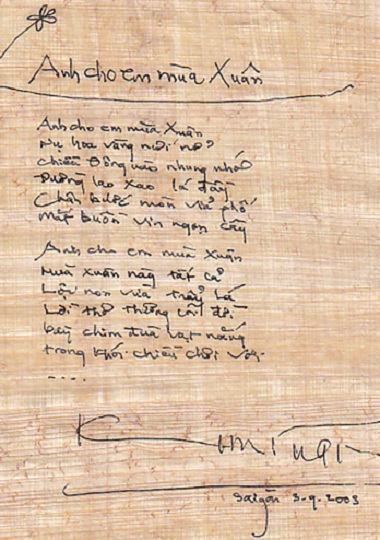 Anh cho em mùa Xuân
Anh cho em mùa Xuân
Nụ hoa vàng mới nở
chiều Đông nào nhung nhớ
Đường lao xao lá đầy
Chân bước mòn vỉa phố
mắt buồn vin ngọn cây
Anh cho em mùa xuân
mùa xuân này tất cả
Lộc non vừa trẩy lá
Lời thơ thương cõi đời
bầy chim đùa vạt nắng
trong khói chiều chơi vơi.
....
Saigon 3-9-2003